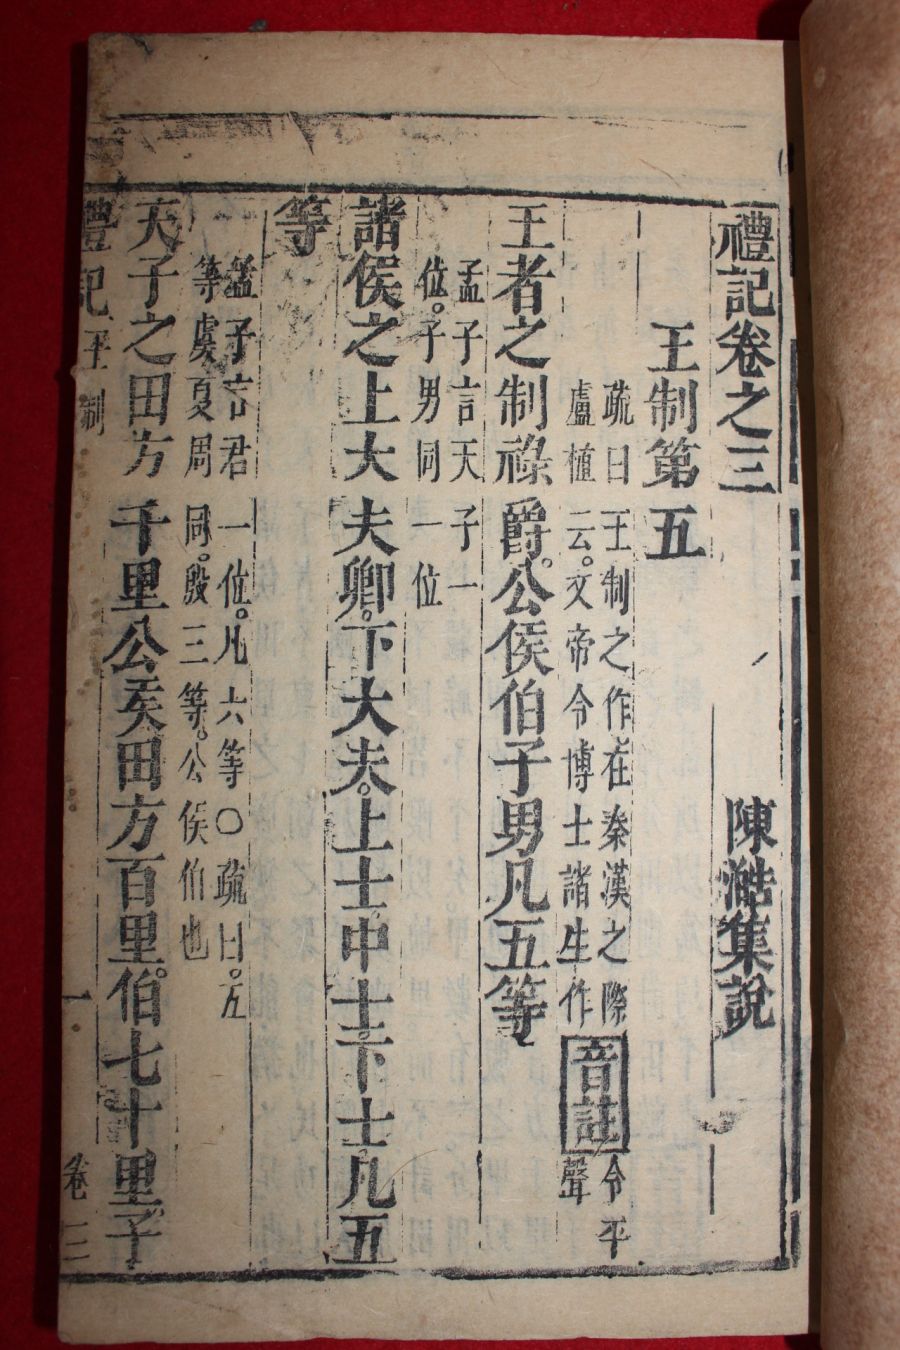 禮記卷之三
陳澔集說
王制第五
疏曰王制之作在秦漢之際
盧植云。文帝令博士諸生作
音註
令平
聲
王者之制祿爵。公侯伯子男凡五等
孟子言天子一
位。子男同一位
諸侯之上大夫卿。下大夫。上士中士。下士。凡五
等
孟子言君一位。凡六等〇疏曰。五
等虞夏周同。殷三等。公侯伯也
天子之田方千里公侯田方百里。伯七十里。子
禮記 王制 一 卷三